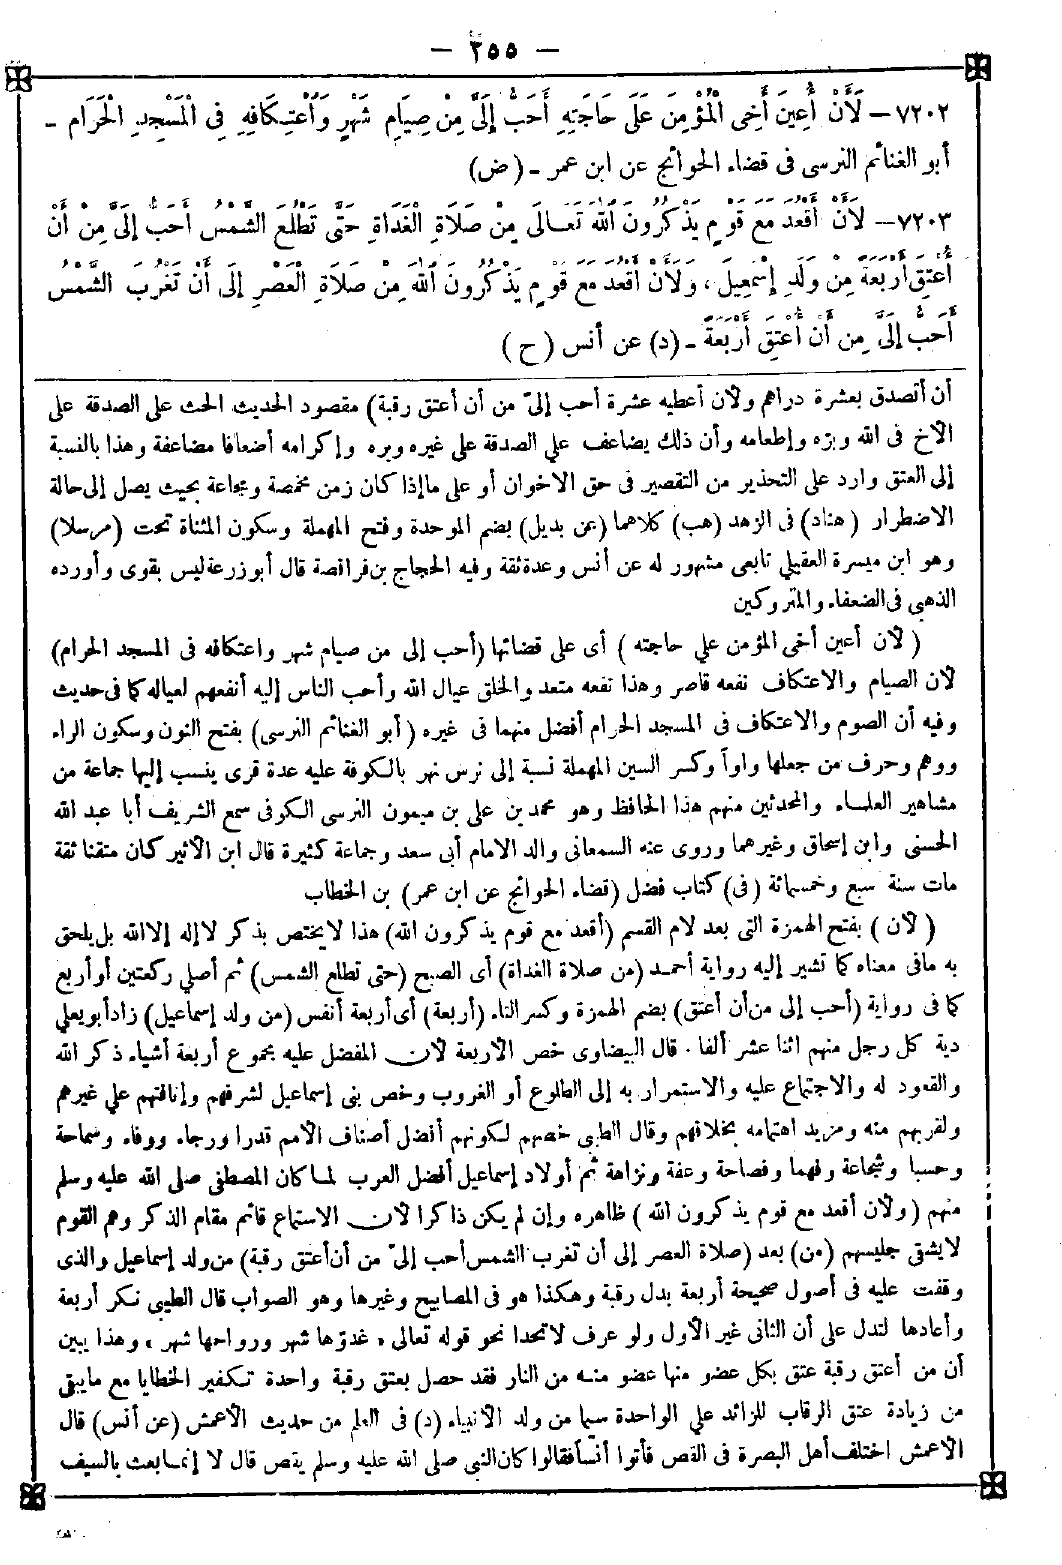 — ٢٥٥ —
٧٢٠٢ — لَأَنْ أُعِينَ أَخِى الْمُؤْمِنَ عَلَى حَاجَتِهِ أَحَبُّ إِلَىَّ مِنْ صِيَامِ شَهْرٍ وَاعْتِكَافِهِ فِى الْمَسْجِدِ الْحَرَامِ -
أبو الغنائم النرسى فى قضاء الحوائج عن ابن عمر - (ض)
٧٢٠٣ — لَأَنْ أَقْعُدَ مَعَ قَوْمٍ يَذْكُرُونَ اللهَ تَعَالَى مِنْ صَلَاةِ الْغَدَاةِ حَتَّى تَطْلُعَ الشَّمْسُ أَحَبُّ إِلَىَّ مِنْ أَنْ
أُعْتِقَ أَرْبَعَةً مِنْ وَلَدِ إِسْمَعِيلَ، وَلَأَنْ أَقْعُدَ مَعَ قَوْمٍ يَذْكُرُونَ اللهَ مِنْ صَلَاةِ الْعَصْرِ إِلَى أَنْ تَغْرُبَ الشَّمْسُ
أَحَبُّ إِلَىَّ مِنْ أَنْ أُعْتِقَ أَرْبَعَةً - (د) عن أنس (ح)
أن أتصدق بعشرة دراهم ولأن أعطيه عشرة أحب إلىّ من أن أعتق رقبة) مقصود الحديث الحث على الصدقة على
الأخ فى الله وبرّه وإطعامه وأن ذلك يضاعف على الصدقة على غيره وبره وإكرامه أضعافا مضاعفة وهذا بالنسبة
إلى العتق وارد على التحذير من التقصير فى حق الاخوان أو على ما إذا كان زمن مخمصة ومجاعة بحيث يصل إلى حالة
الاضطرار (هناد) فى الزهد (هب) كلاهما (عن بديل) بضم الموحدة وفتح المهملة وسكون المثناة تحت (مرسلا)
وهو ابن ميسرة العقيلى تابعى مشهور له عن أنس وعدة ثقة وفيه الحجاج بن فرافصة قال أبو زرعة ليس بقوى وأورده
الذهبى فى الضعفاء والمتروكين
(لأن أعين أخى المؤمن على حاجته) أى على قضائها (أحب إلى من صيام شهر واعتكافه فى المسجد الحرام)
لان الصيام والاعتكاف نفعه قاصر وهذا نفعه متعد والخلق عيال الله وأحب الناس إليه أنفعهم لعياله كما فى حديث
وفيه أن الصوم والاعتكاف فى المسجد الحرام أفضل منهما فى غيره (أبو الغنائم النرسى) بفتح النون وسكون الراء
ووهم وحرف من جعلها واواً وكسر السين المهملة نسبة إلى نرس نهر بالكوفة عليه عدة قرى ينسب إليها جماعة من
مشاهير العلماء والمحدثين منهم هذا الحافظ وهو محمد بن على بن ميمون النرسى الكوفى سمع الشريف أبا عبد الله
الحسنى وابن إسحاق وغيرهما وروى عنه السمعانى والد الامام أبى سعد وجماعة كثيرة قال ابن الأثير كان متقنا ثقة
مات سنة سبع وخمسمائة (فى) كتاب فضل (قضاء الحوائج عن ابن عمر) بن الخطاب
(لأن) بفتح الهمزة التى بعد لام القسم (أقعد مع قوم يذكرون الله) هذا لا يختص بذكر لا إله إلا الله بل يلحق
به مافى معناه كما تشير إليه رواية أحمد (من صلاة الغداة) أى الصبح (حتى تطلع الشمس) ثم أصلى ركعتين أو أربع
كما فى رواية (أحب إلى من أن أعتق) بضم الهمزة وكسر التاء (أربعة) أى أربعة أنفس (من ولد إسماعيل) زاد أبو يعلى
دية كل رجل منهم اثنا عشر ألفا . قال البيضاوى خص الأربعة لأن المفضل عليه مجموع أربعة أشياء ذكر الله
والقعود له والاجتماع عليه والاستمرار به إلى الطلوع أو الغروب وخص بنى إسماعيل لشرفهم وإنافتهم على غيرهم
ولقربهم منه ومزيد اهتمامه بخلاقهم وقال الطيبى خصهم لكونهم أفضل أصناف الأمم قدرا ورجاء ووفاء وسماحة
وحسبا وشجاعة وفهما وفصاحة وعفة ونزاهة ثم أولاد إسماعيل أفضل العرب لما كان المصطفى صلى الله عليه وسلم
منهم (ولأن أقعد مع قوم يذكرون الله) ظاهره وإن لم يكن ذاكرا لأن الاستماع قائم مقام الذكر وهم القوم
لا يشقى جليسهم (من) بعد (صلاة العصر إلى أن تغرب الشمس أحب إلىّ من أن أعتق رقبة) من ولد إسماعيل والذى
وقفت عليه فى أصول صحيحة أربعة بدل رقبة وهكذا هو فى المصابيح وغيرها وهو الصواب قال الطيبى نكر أربعة
وأعادها لتدل على أن الثانى غير الأول ولو عرف لاتحدا نحو قوله تعالى ، غدوّها شهر ورواحها شهر ، وهذا يبين
أن من أعتق رقبة عتق بكل عضو منها عضو منه من النار فقد حصل بعتق رقبة واحدة تكفير الخطايا مع مايبقى
من زيادة عتق الرقاب للزائد على الواحدة سيما من ولد الأنبياء (د) فى العلم من حديث الأعمش (عن أنس) قال
الأعمش اختلف أهل البصرة فى القص فأتوا أنسا فقالوا كان النبى صلى الله عليه وسلم يقص قال لا إنما بعث بالسيف